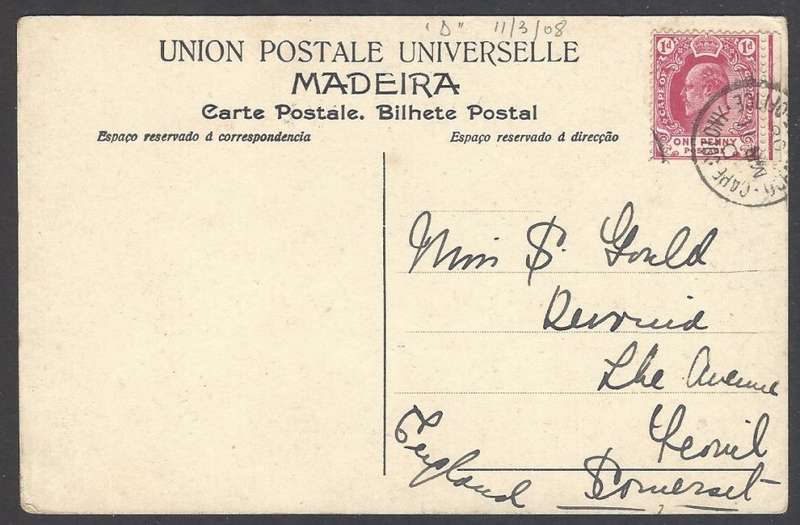 "D" 11/3/08
UNION POSTALE UNIVERSELLE
MADEIRA
Carte Postale. Bilhete Postal
Espaço reservado á correspondencia
Espaço reservado á direcção
1d 1d
CAPE OF
ONE PENNY
POSTAGE
Miss S. Gould
The Avenue
Yeovil
Somerset
England